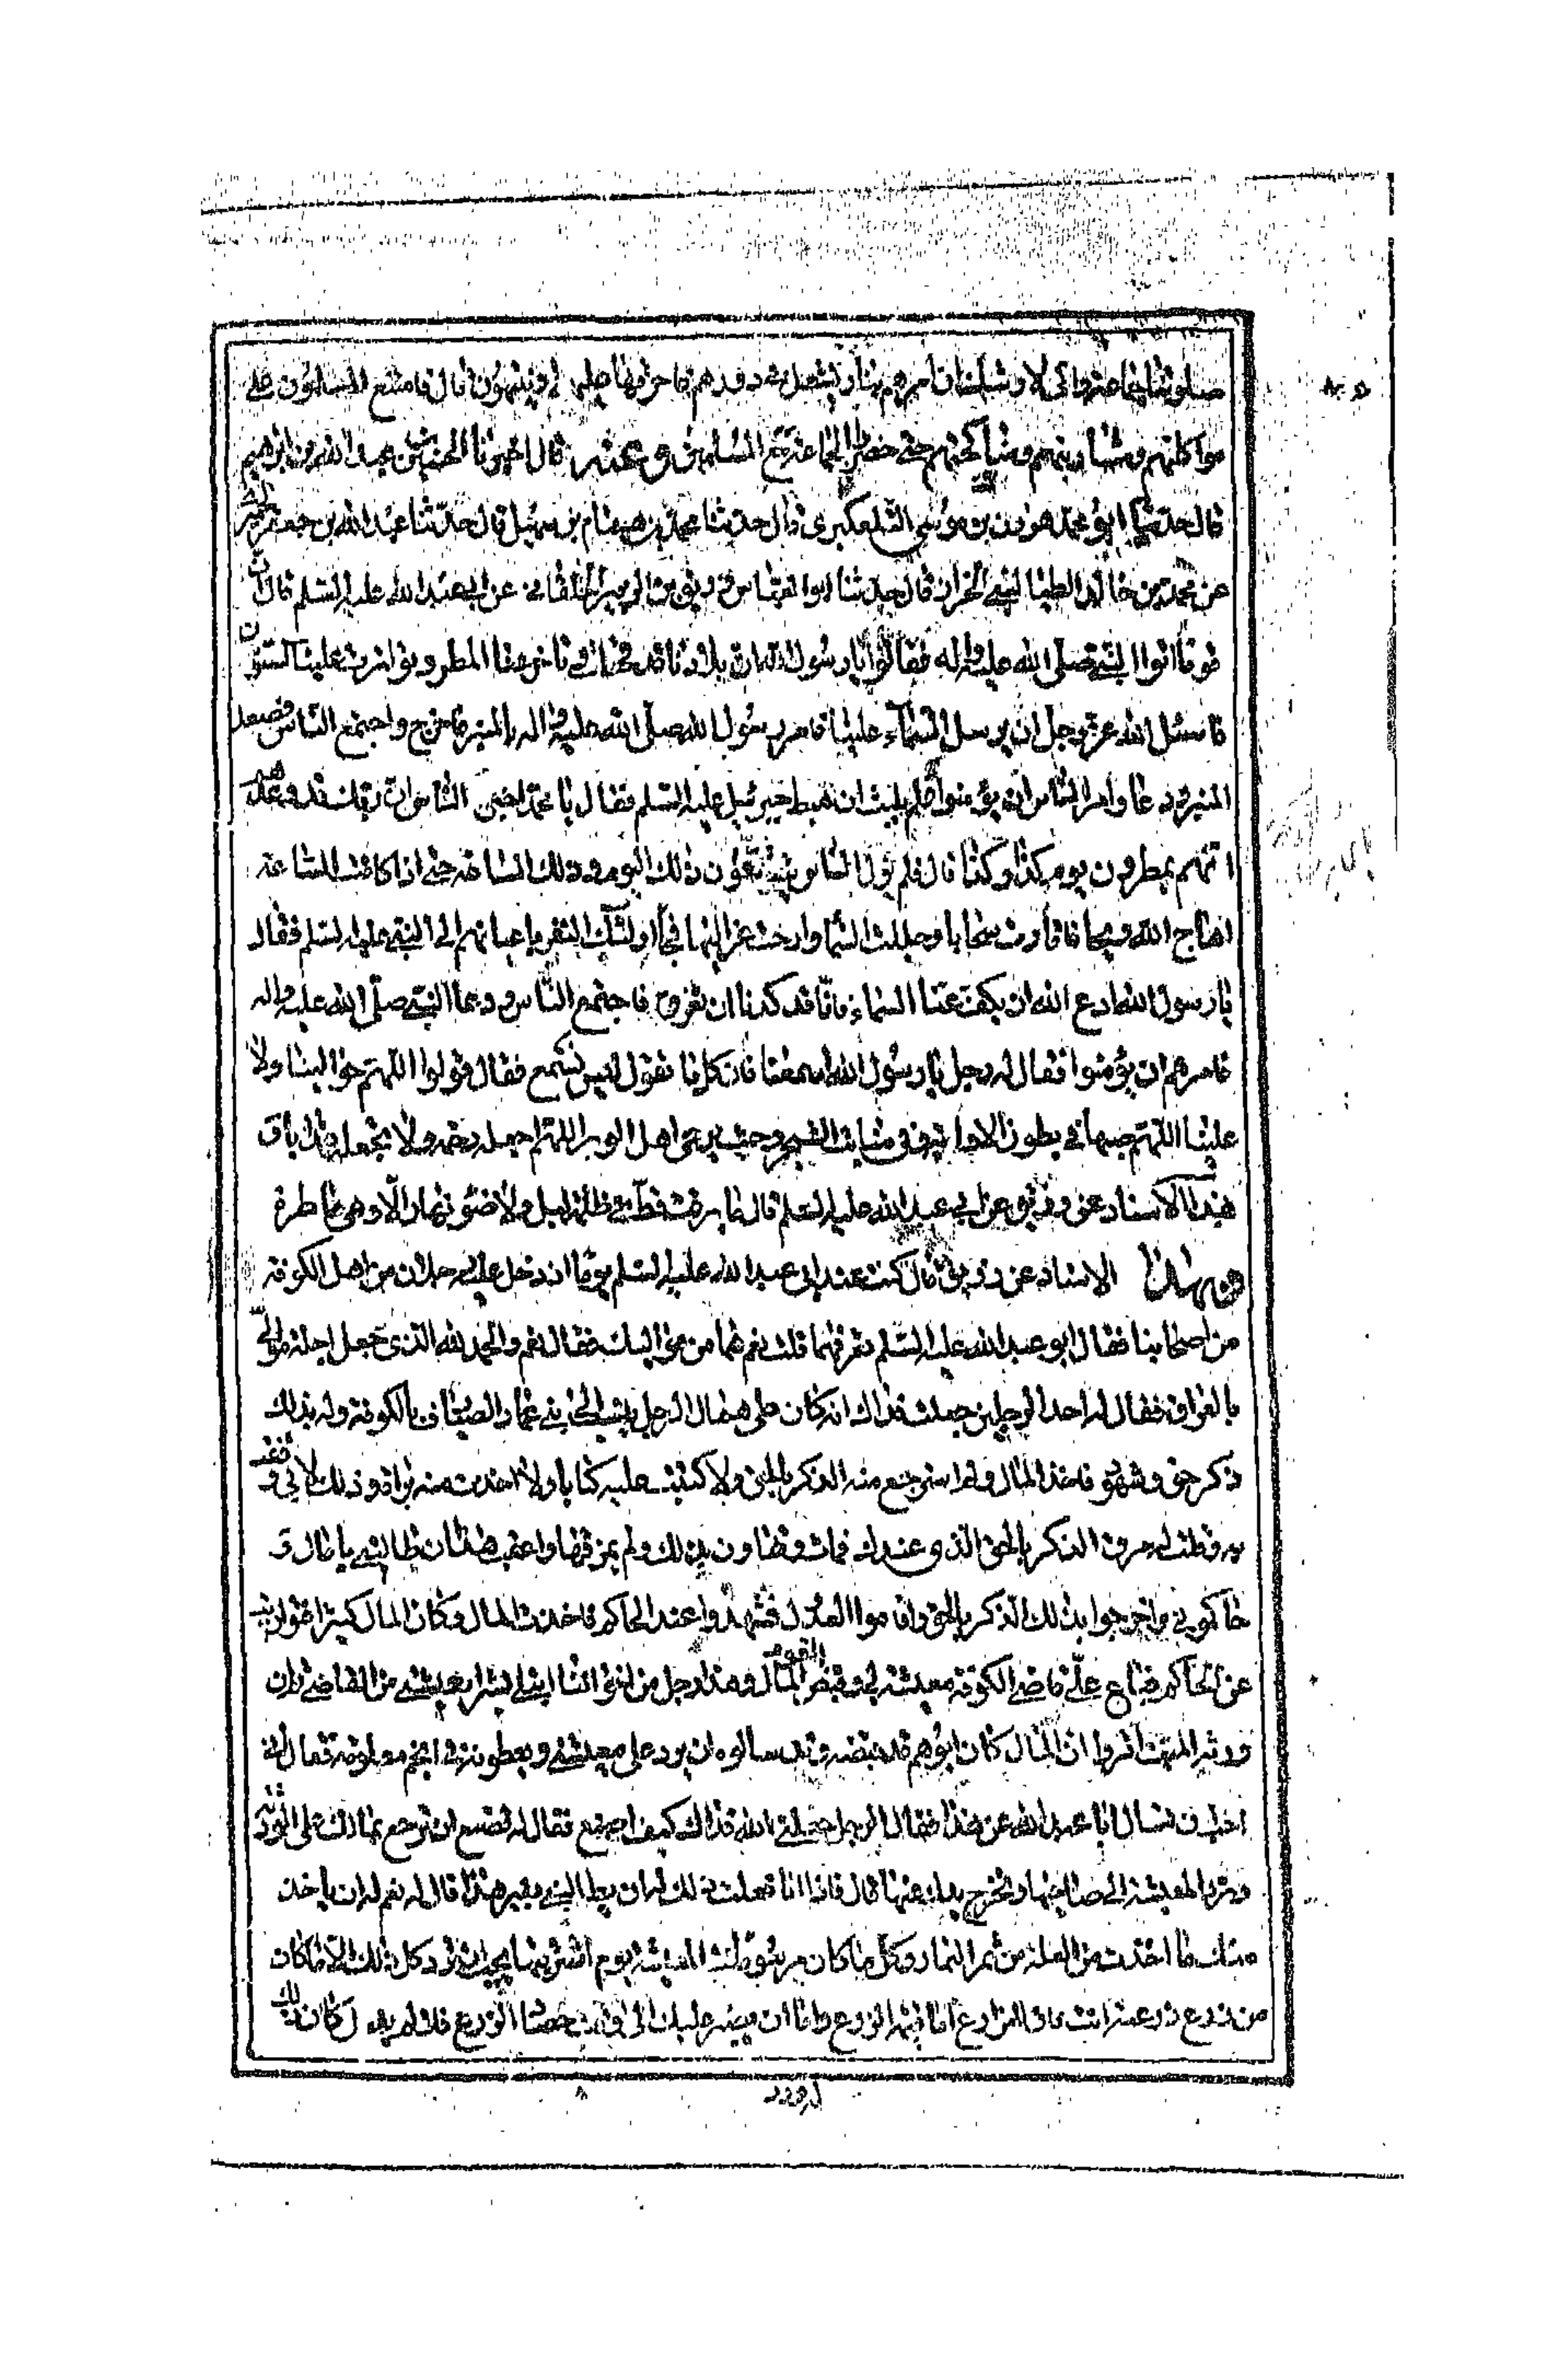 صلوتنا جماعة واني لاوشك ان امرهم بنار تشعل في دورهم فاحرقها عليهم او ينتهون قال فامتنع المسلمون عن
مواكلتهم ومشاربتهم ومناكحتهم حتى حضروا الجماعة مع المسلمين وعنه قال اخبرنا الحسين بن عبيد الله عن ابرهيم
قال حدثنا ابو محمد هرون بن موسى التلعكبري قال حدثنا محمد بن همام بن سهيل قال حدثنا عبد الله بن جعفر الحميري
عن محمد بن خالد الطيالسي الخزاز قال حدثنا ابو العباس رزيق بن الزبير الخلقاني عن ابي عبد الله عليه السلم قال ان
قوما اتوا النبي صلى الله عليه واله فقالوا يا رسول الله ان بلادنا قد قحطت وتاخر عنا المطر وتواترت علينا السنون
فاسئل الله عز وجل ان يرسل السماء علينا فامر رسول الله صلى الله عليه واله بالمنبر فاخرج واجتمع الناس فصعد
المنبر ودعا وامر الناس ان يؤمنوا فلم يلبث ان هبط جبرئيل عليه السلم فقال يا محمد اخبر الناس ان ربك قد وعدهم
انهم يمطرون يوم كذا وكذا قال فلم يزل الناس يتتبعون ذلك اليوم وتلك الساعة حتى اذا كانت الساعة
اهاج الله ريحا فاثارت سحابا وجللت السماء وارخت عزاليها فجاء اولئك النفر باعيانهم الى النبي عليه السلم فقال
يا رسول الله ادع الله ان يكف عنا السماء فانا قد كدنا ان نغرق فاجتمع الناس ودعا النبي صلى الله عليه واله
فامرهم ان يؤمنوا فقال له رجل يا رسول الله اسمعنا فان كل ما تقول ليس نسمع فقال قولوا اللهم حوالينا ولا
علينا اللهم صبها في بطون الاودية وفي منابت الشجر وحيث يرعى اهل الوبر اللهم اجعله رحمة ولا تجعله عذابا و
بهذا الاسناد عن رزيق عن ابي عبد الله عليه السلم قال ما برقت قط في ظلمة ليل ولا ضوء نهار الا وهي ماطرة
وبهذا الاسناد عن رزيق قال كنت عند ابي عبد الله عليه السلم يوما اذ دخل عليه رجلان من اهل الكوفة
من اصحابنا فقال ابو عبد الله عليه السلم تعرفهما قلت نعم هما من مواليك فقال نعم والحمد لله الذي جعل اجلة موالي
بالعراق فقال له احد الرجلين جعلت فداك انه كان علي مال لرجل ينسب الى بني عمار الصيارف بالكوفة وله بذلك
ذكر حق وشهود فاخذ المال ولم استرجع منه الذكر بالحق ولا كتبت عليه كتابا ولا اخذت منه براءة وذلك لاني وثقت
به وقلت له مزق الذكر بالحق الذي عندك فمات وتهاون بذلك ولم يمزقها واعقب هذا ان طالبني بالمال و
حاكموني واخرجوا بذلك الذكر بالحق واقاموا العدول فشهدوا عند الحاكم فاخذت بالمال وكان المال كثيرا فتواريت
عن الحاكم فباع علي قاضي الكوفة معيشة لي وقبض القوم المال وهذا رجل من اخواننا ابتلي بشراء معيشتي من القاضي ثم ان
ورثة الميت اقروا ان المال كان ابوهم قد قبضه وقد سالوه ان يرد علي معيشتي ويعطونه في انجم معلومة فقال اني
احب ان تسال ابا عبد الله عن هذا فقال الرجل جعلني الله فداك كيف اصنع فقال له تصنع ان ترجع بمالك على الورثة
وترد المعيشة الى صاحبها وتخرج يدك عنها قال فاذا انا فعلت ذلك له ان يطالبني بغير هذا قال له نعم له ان ياخذ
منك ما اخذت من الغلة من ثمر الثمار وكل ما كان مرسوما في المعيشة يوم اشتريتها يجب ان ترد كل ذلك الا ما كان
من زرع زرعته انت فان للمزارع اما قيمة الزرع واما ان يصبر عليك الى وقت حصاد الزرع فان لم يفعل كان ذلك